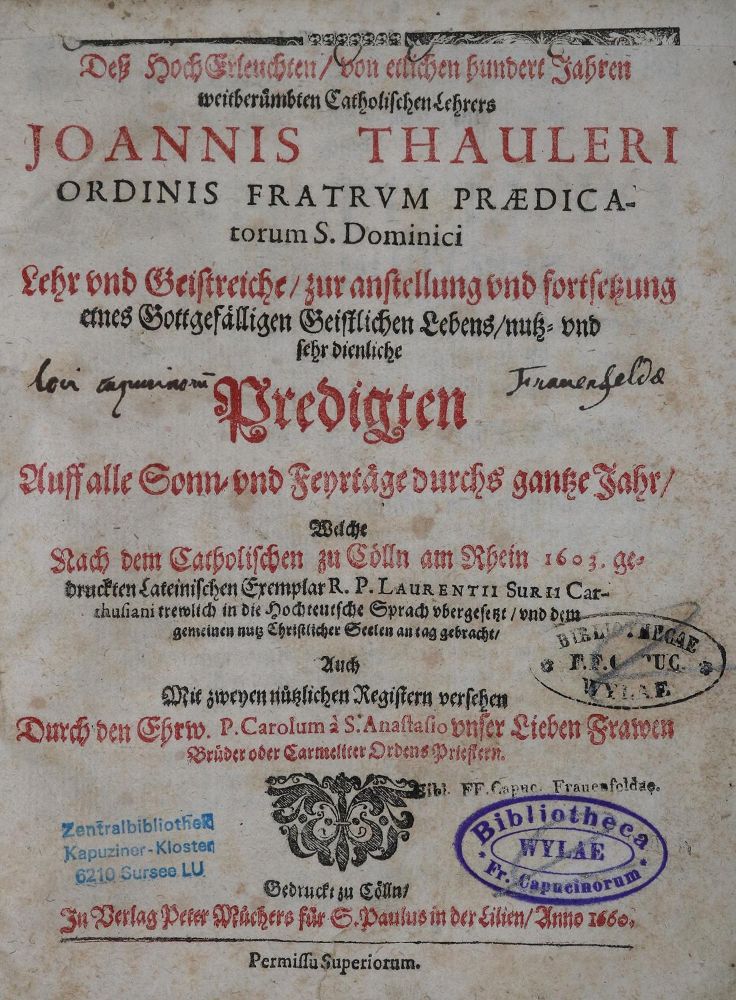 Deß HochErleuchten / von etlichen hundert Jahren
weitberümbten Catholischen Lehrers
JOANNIS THAULERI
ORDINIS FRATRVM PRÆDICA-
torum S. Dominici
Lehr vnd Geistreiche / zur anstellung vnd fortsetzung
eines Gottgefälligen Geistlichen Lebens / nutz- vnd
sehr dienliche
Loci capucinorū Frauenfeldæ
Predigten
Auff alle Sonn- vnd Feyrtäge durchs gantze Jahr /
Welche
Nach dem Catholischen zu Cölln am Rhein 1603. ge-
druckten Lateinischen Exemplar R. P. LAURENTII SURII Car-
thusiani trewlich in die Hochteutsche Sprach vbergesetzt / vnd dem
gemeinen nutz Christlicher Seelen an tag gebracht /
BIBLIOTHECAE
F.F. CAPUC.
WYLAE
Auch
Mit zweyen nützlichen Registern versehen
Durch den Ehrw. P. Carolum à S. Anastasio vnser Lieben Frawen
Brüder oder Carmeliter Ordens Priestern.
Bibl. FF. Capuc. Frauenfeldae.
Zentralbibliothek
Kapuziner-Kloster
6210 Sursee LU
Bibliotheca
WYLAE
Fr. Capucinorum
Gedruckt zu Cölln /
In Verlag Peter Müchers für S. Paulus in der Lilien / Anno 1660.
Permissu Superiorum.